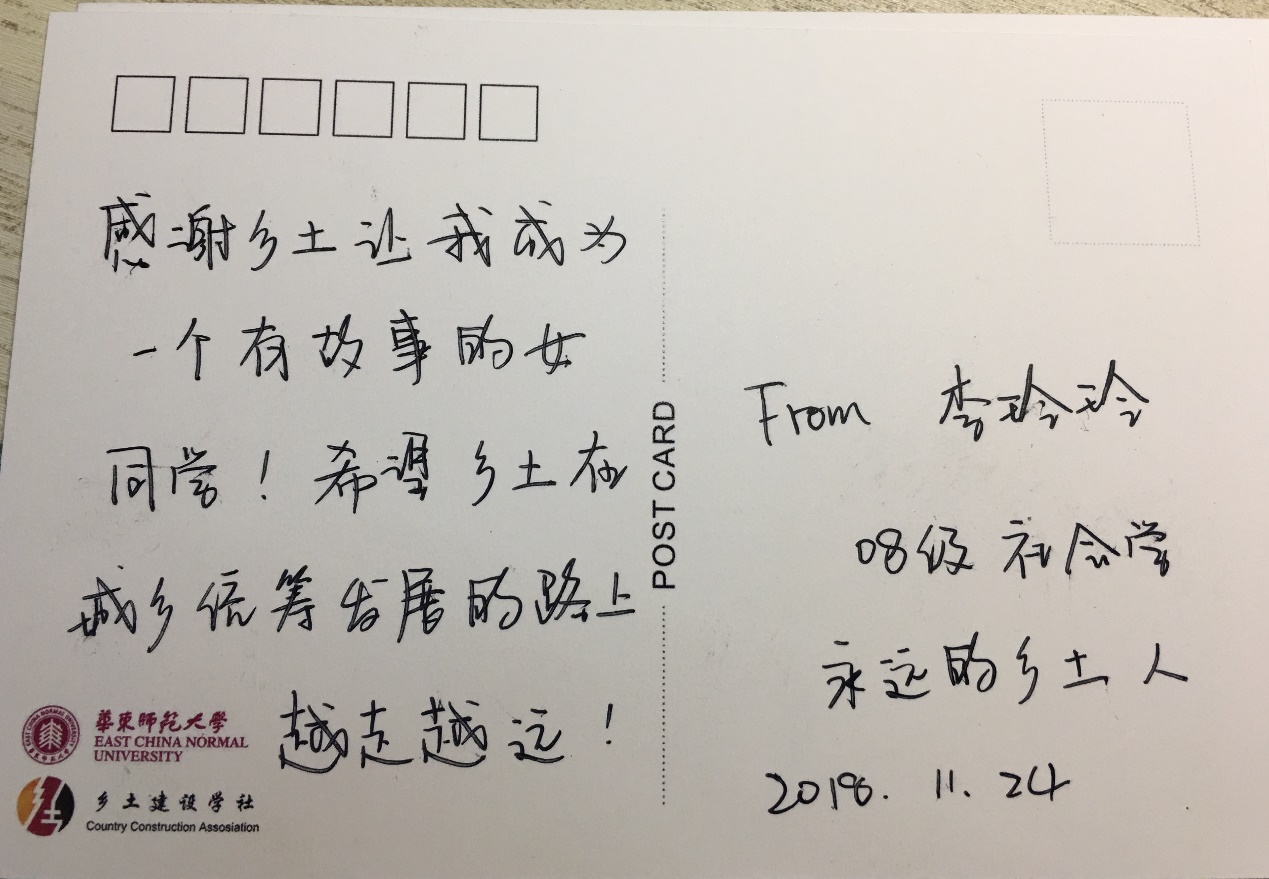 感谢乡土让我成为
一个有故事的女
同学！希望乡土在
城乡统筹发展的路上
越走越远！
POST CARD
From 李玲玲
08级 社会学
永远的乡土人
2018. 11. 24
華東師範大學
EAST CHINA NORMAL
UNIVERSITY
乡土建设学社
Country Construction Assosiation